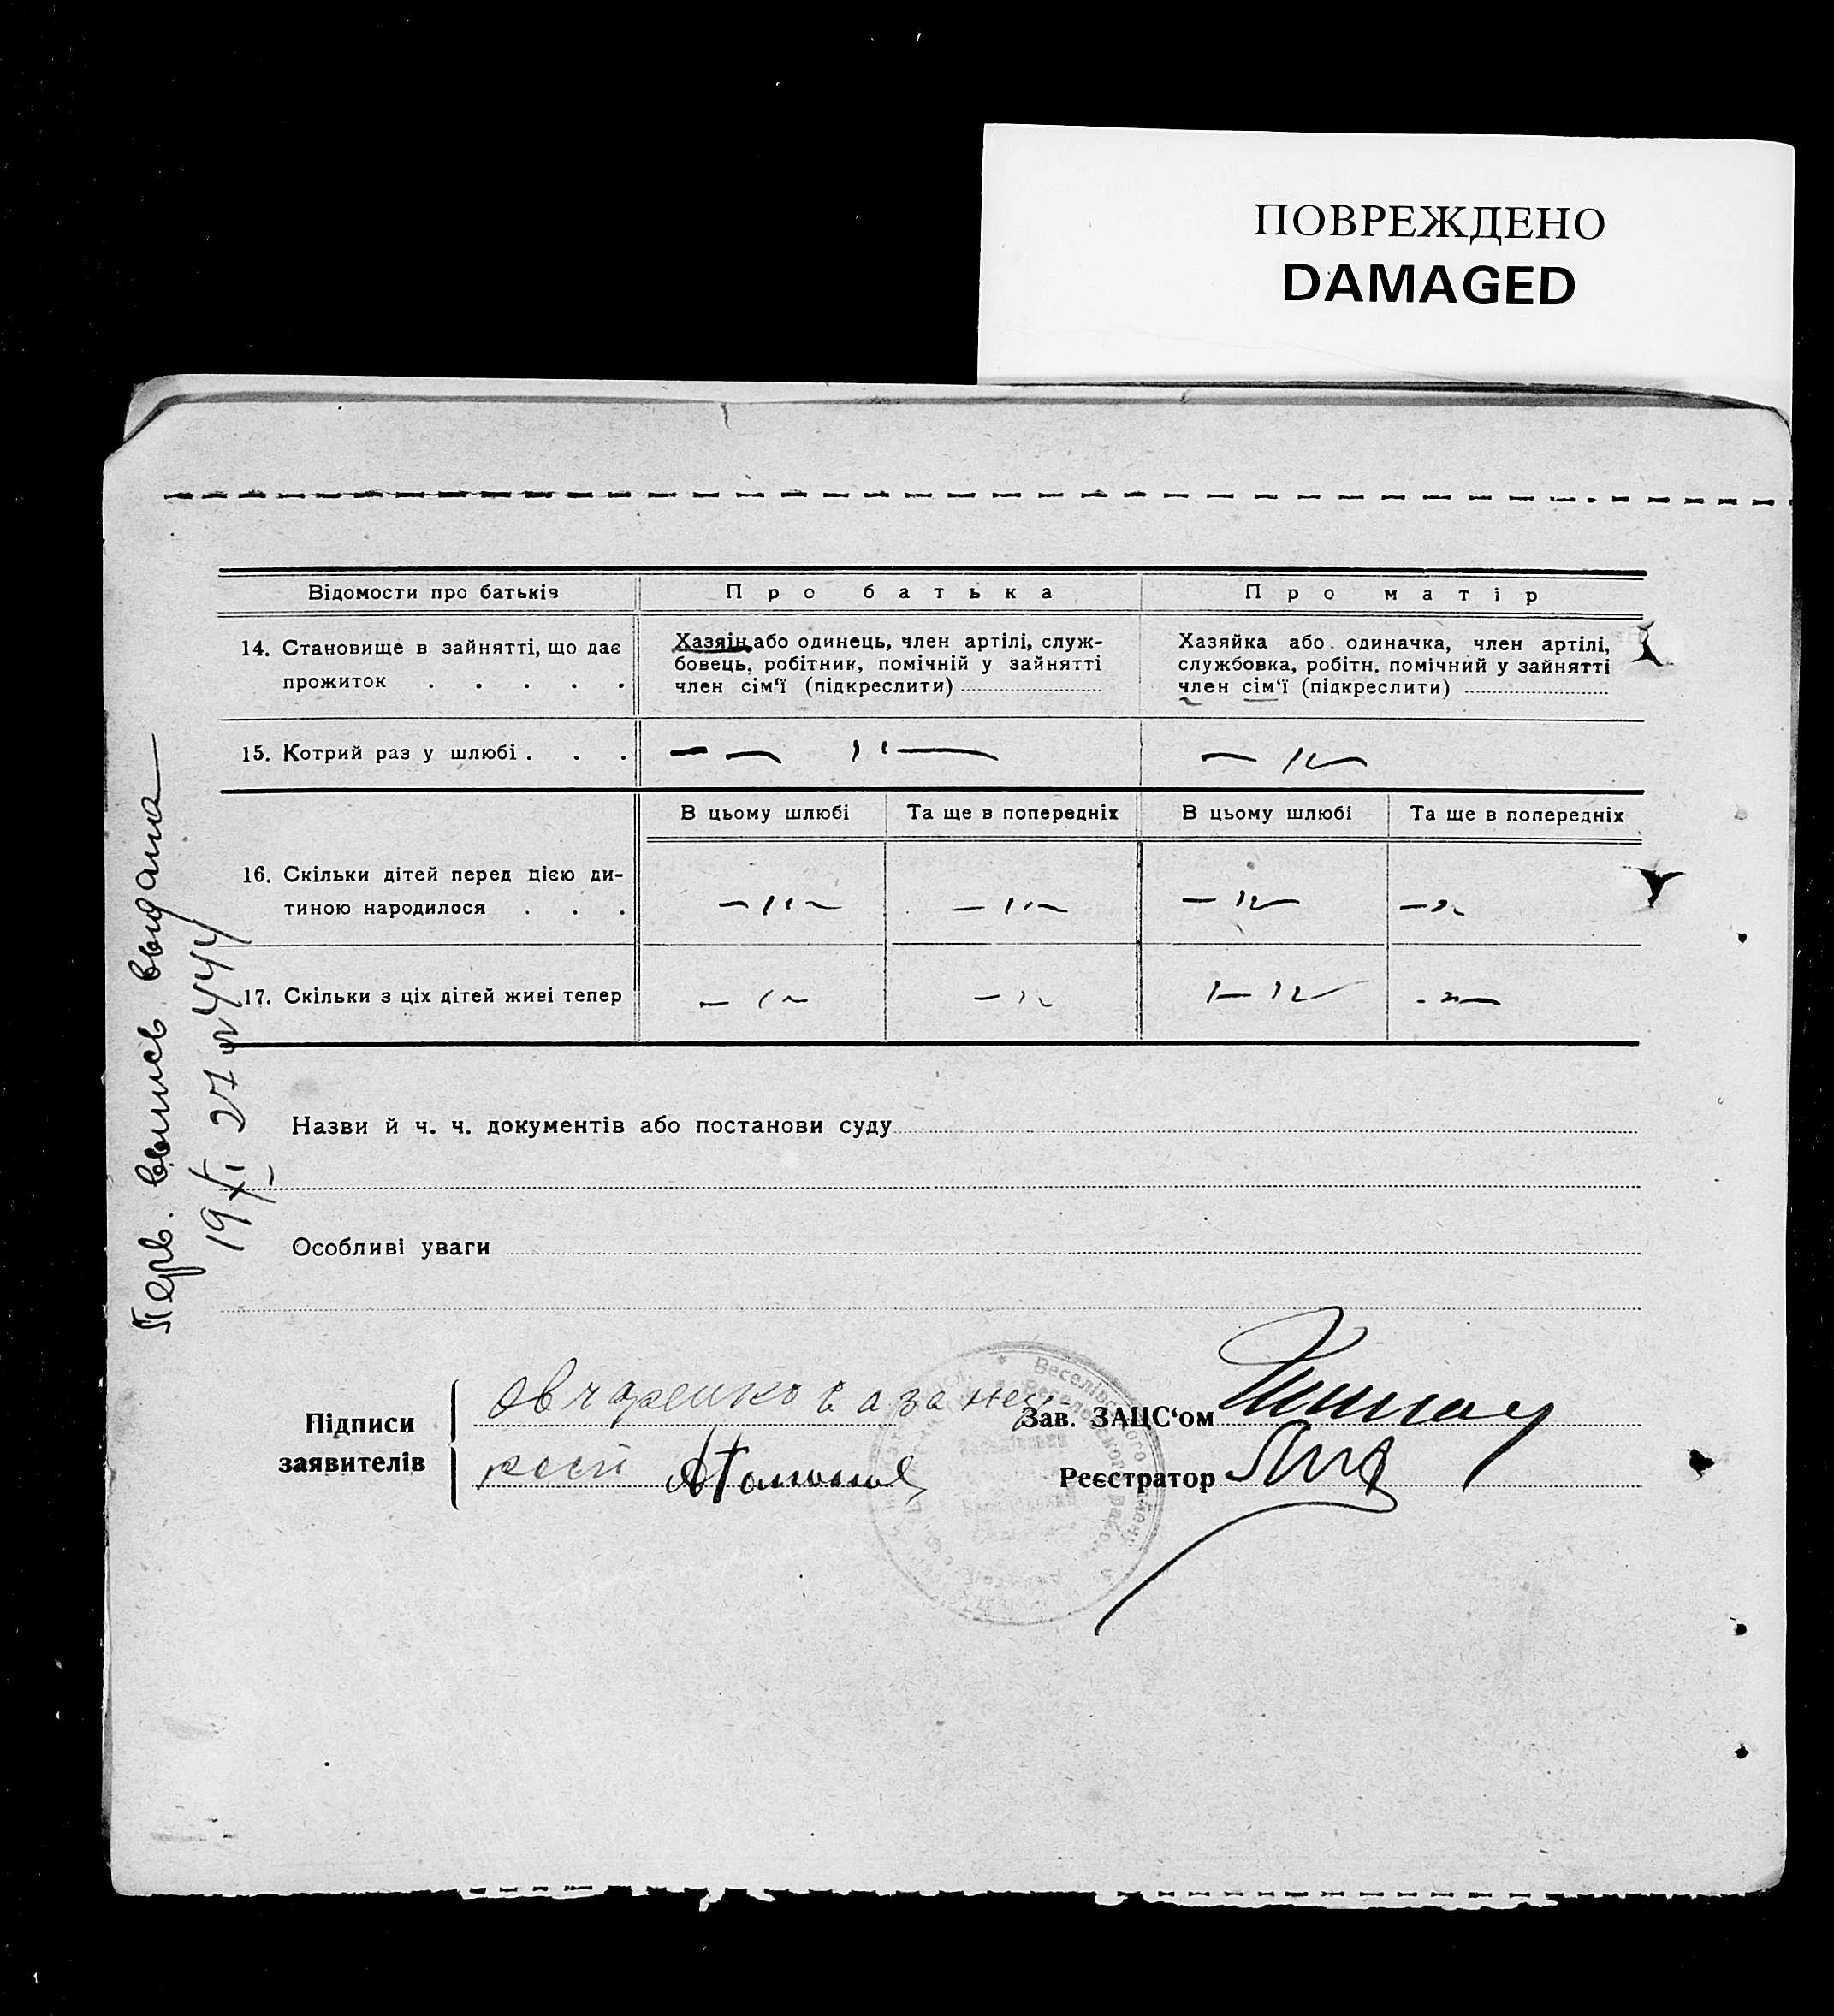 ПОВРЕЖДЕНО
DAMAGED
Відомости про батьків
Про батька
Про матір
14. Становище в зайнятті, що дає
прожиток . . . . .
Хазяін або одинець, член артілі, служ-
бовець, робітник, помічній у зайнятті
член сім‘ї (підкреслити)
Хазяйка або одиначка, член артілі,
службовка, робітн. помічний у зайнятті
член сім‘ї (підкреслити)
15. Котрий раз у шлюбі . . .
В цьому шлюбі
Та ще в попередніх
В цьому шлюбі
Та ще в попередніх
16. Скільки дітей перед цією ди-
тиною народилося . . .
17. Скільки з ціх дітей живі тепер
Назви й ч. ч. документів або постанови суду
Особливі уваги
Перв. выпись выдана
19/XI 27 № 444
Підписи
заявителів
Овчаренко
Зав. ЗАЦС‘ом
Реєстратор
Веселівського